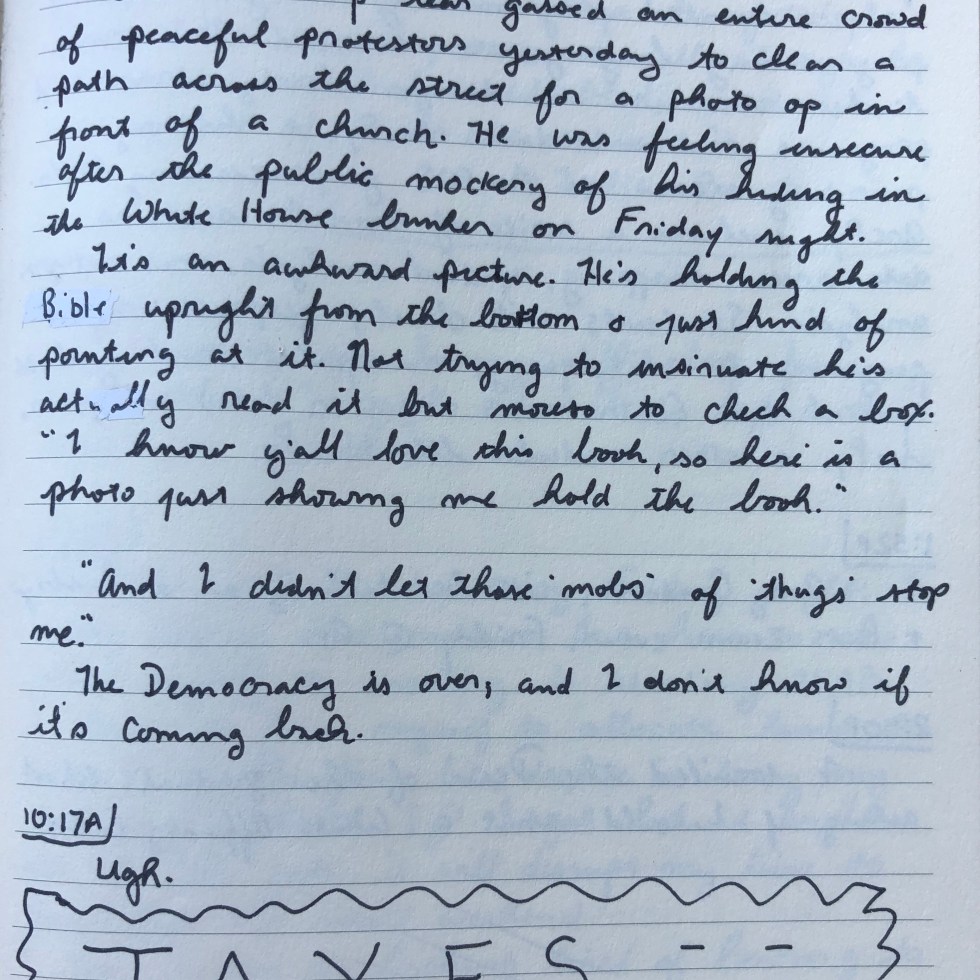 tear gassed an entire crowd
of peaceful protestors yesterday to clear a
path across the street for a photo op in
front of a church. He was feeling insecure
after the public mockery of his hiding in
the White House bunker on Friday night.
It's an awkward picture. He's holding the
Bible upright from the bottom & just kind of
pointing at it. Not trying to insinuate he's
actually read it but moreso to check a box.
"I know y'all love this book, so here is a
photo just showing me hold the book."
"And I didn't let those 'mobs' of 'thugs' stop
me."
The Democracy is over, and I don't know if
it's coming back.
10:17A
Ugh.
TAXES --